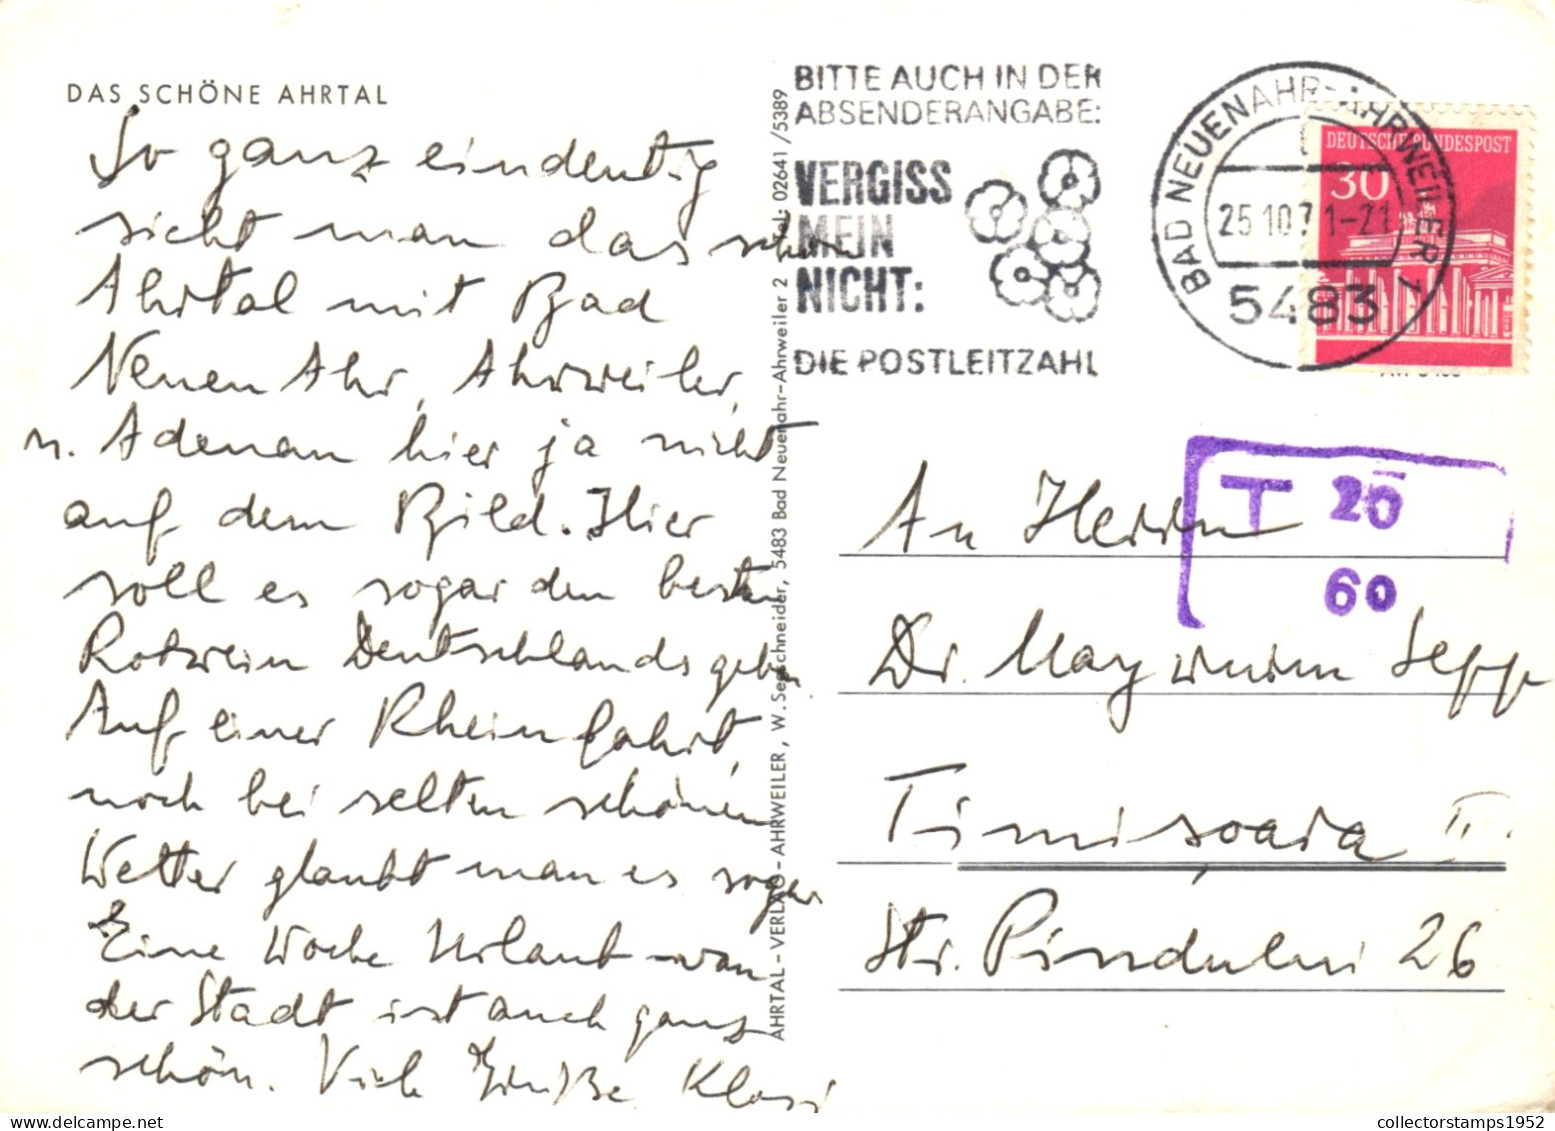 DAS SCHÖNE AHRTAL
So ganz eindeutig
sieht man das schöne
Ahrtal mit Bad
Neuen Ahr, Ahrweiler,
u. Adenau hier ja nicht
auf dem Bild. Hier
soll es sogar den besten
Rotwein Deutschlands geben.
Auf einer Rheinfahrt,
noch bei selten schönem
Wetter glaubt man es sogar
Eine Woche Urlaub von
der Stadt ist auch ganz
schön. Viele Grüße Klosi
AHRTAL-VERLAG-AHRWEILER, W. Seeschneider, 5483 Bad Neuenahr-Ahrweiler 2 Tel: 02641/5389
BITTE AUCH IN DER
ABSENDERANGABE:
VERGISS
MEIN
NICHT:
DIE POSTLEITZAHL
BAD NEUENAHR-AHRWEILER 1
25.10.71-21
5483
DEUTSCHE BUNDESPOST
30
T 20
60
An Herrn
Dr. May Sepp
Timişoara II
Str. Pindului 26
collectorstamps1952